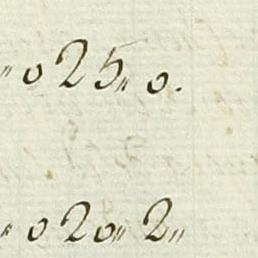 „025„0.
„020„2„